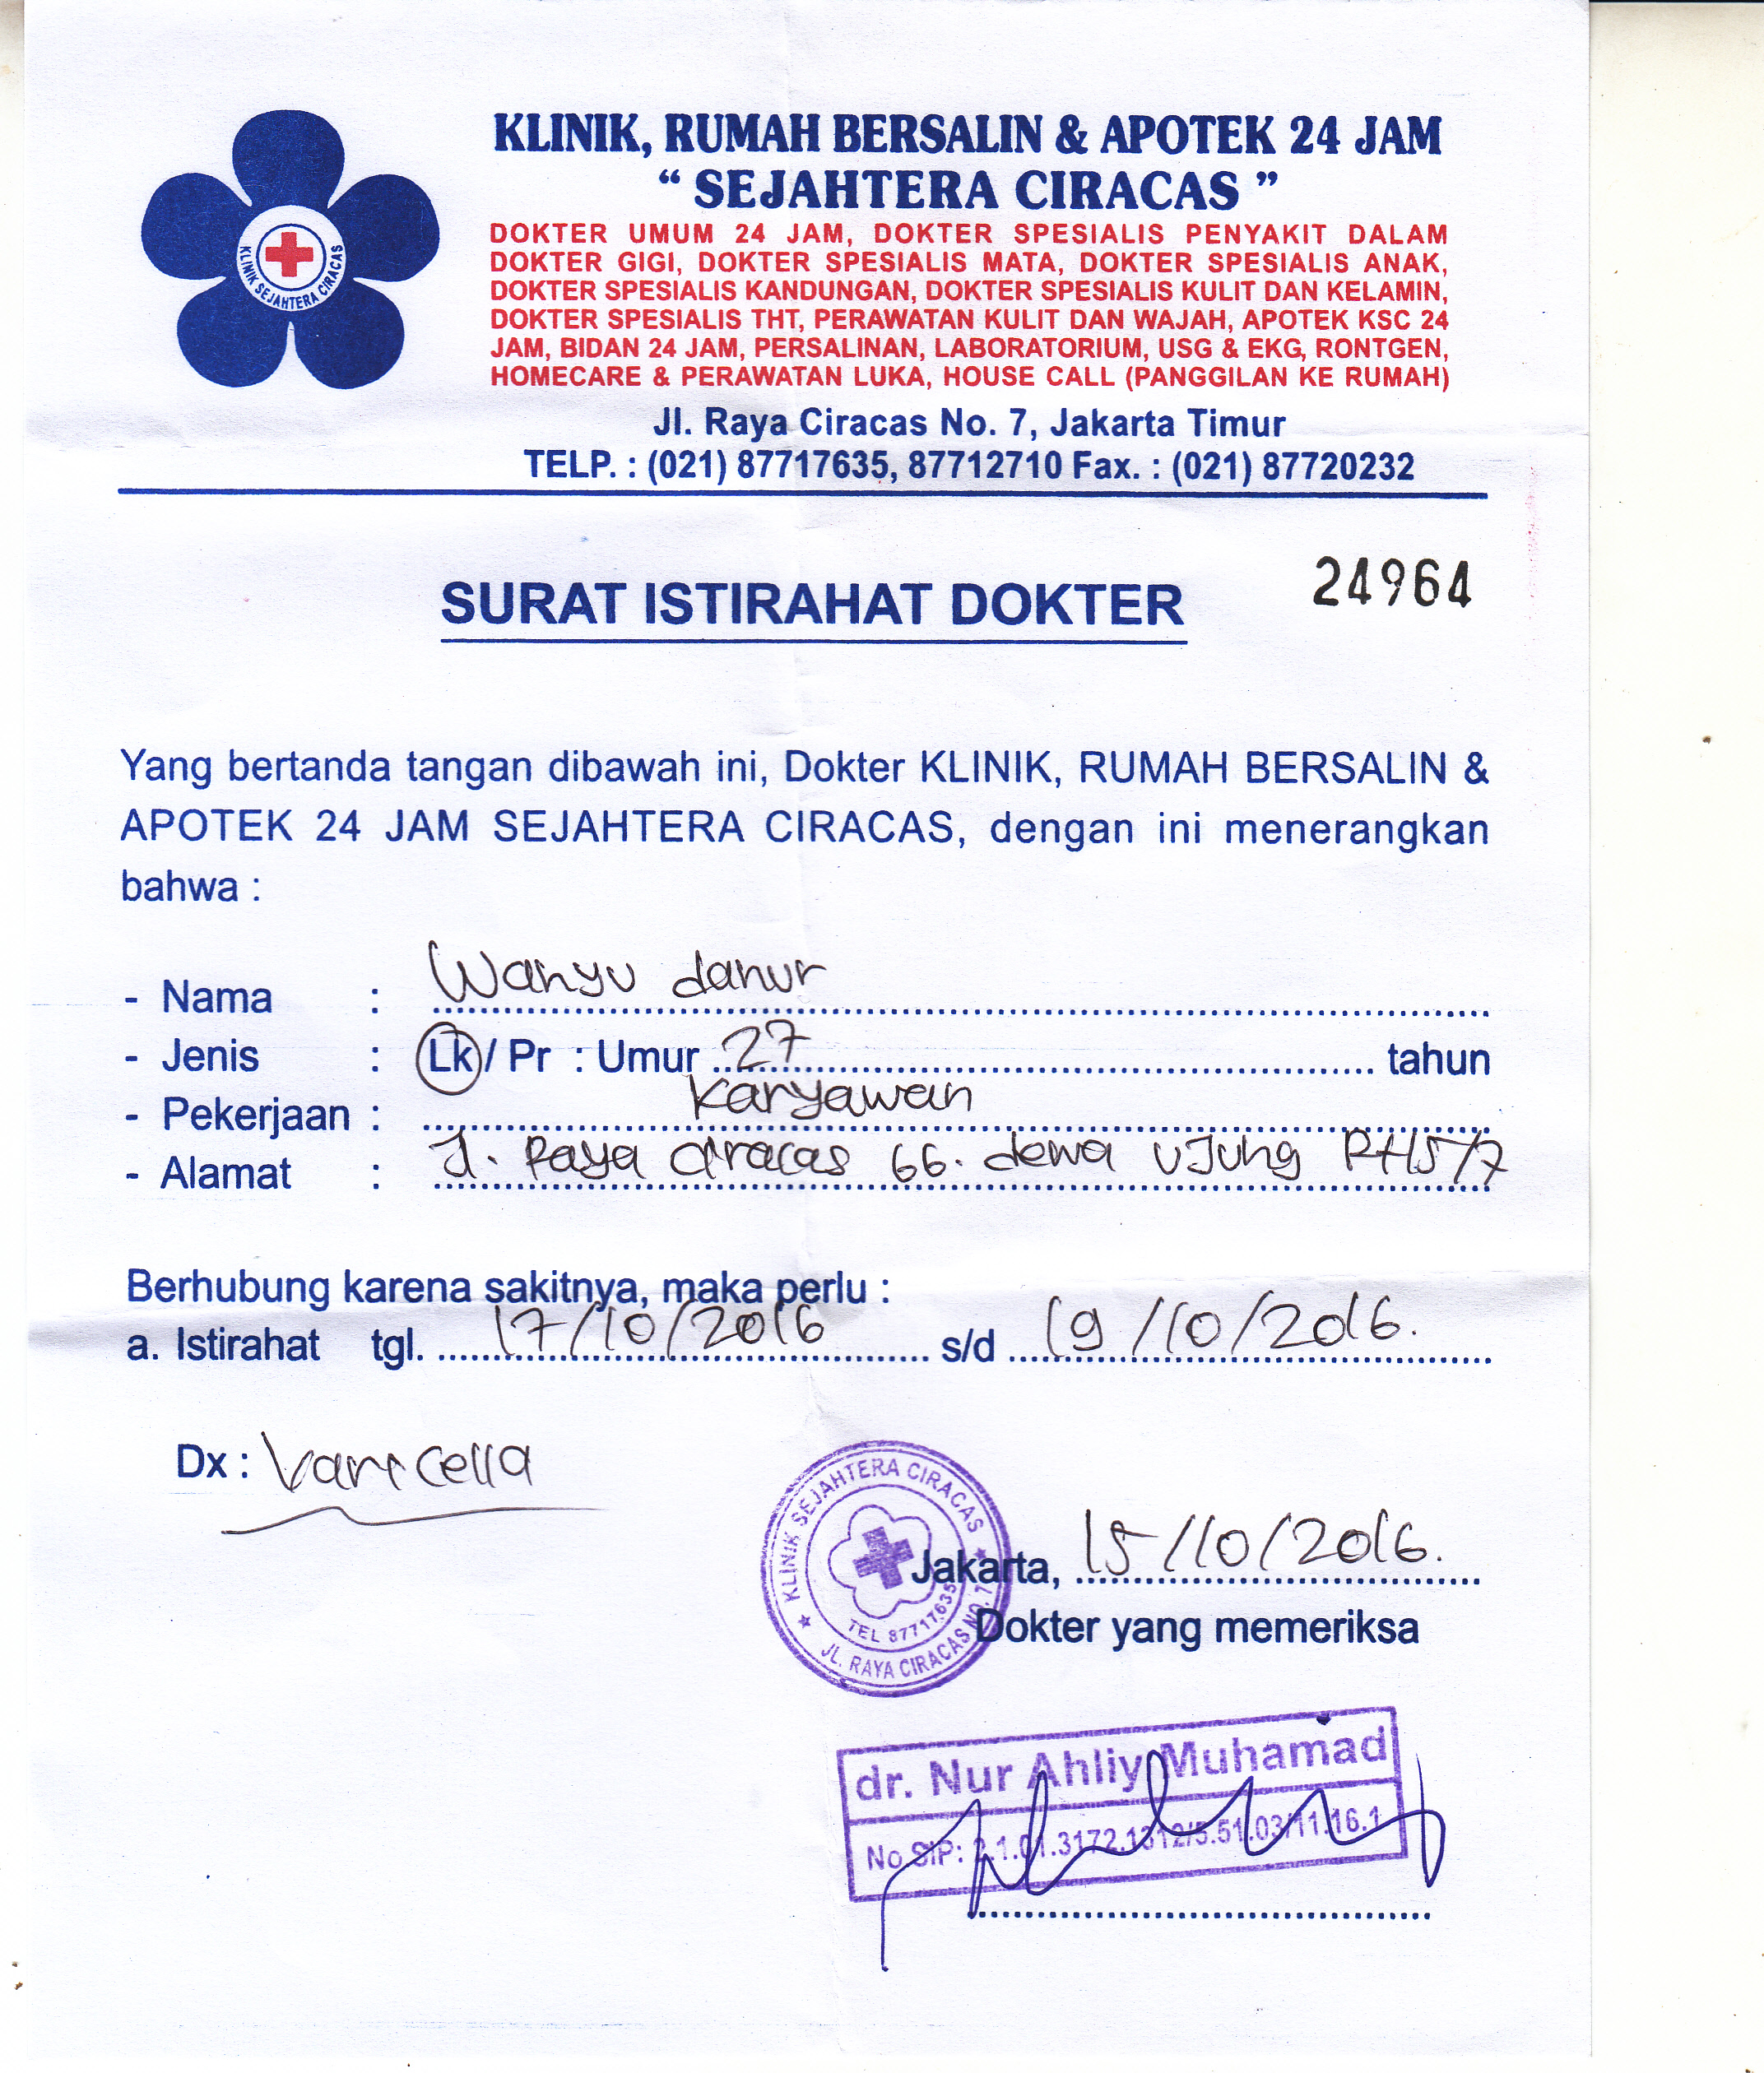 KLINIK, RUMAH BERSALIN & APOTEK 24 JAM
“ SEJAHTERA CIRACAS ”
DOKTER UMUM 24 JAM, DOKTER SPESIALIS PENYAKIT DALAM
DOKTER GIGI, DOKTER SPESIALIS MATA, DOKTER SPESIALIS ANAK,
DOKTER SPESIALIS KANDUNGAN, DOKTER SPESIALIS KULIT DAN KELAMIN,
DOKTER SPESIALIS THT, PERAWATAN KULIT DAN WAJAH, APOTEK KSC 24
JAM, BIDAN 24 JAM, PERSALINAN, LABORATORIUM, USG & EKG, RONTGEN,
HOMECARE & PERAWATAN LUKA, HOUSE CALL (PANGGILAN KE RUMAH)
KLINIK SEJAHTERA CIRACAS
Jl. Raya Ciracas No. 7, Jakarta Timur
TELP. : (021) 87717635, 87712710 Fax. : (021) 87720232
SURAT ISTIRAHAT DOKTER 24964
Yang bertanda tangan dibawah ini, Dokter KLINIK, RUMAH BERSALIN &
APOTEK 24 JAM SEJAHTERA CIRACAS, dengan ini menerangkan
bahwa :
- Nama : Wahyu danur
- Jenis : Lk / Pr : Umur 27 tahun
- Pekerjaan : Karyawan
- Alamat : Jl. Raya Ciracas 66. dewa ujung Rt 15/7
Berhubung karena sakitnya, maka perlu :
a. Istirahat tgl. 17/10/2016 s/d 19/10/2016.
Dx : Varicella
KLINIK SEJAHTERA CIRACAS
TEL 87717635
JL. RAYA CIRACAS NO. 7
Jakarta, 15/10/2016.
Dokter yang memeriksa
dr. Nur Ahliy Muhamad
No SIP: 2.1.01.3172.1312/5.51.03/11.16.1